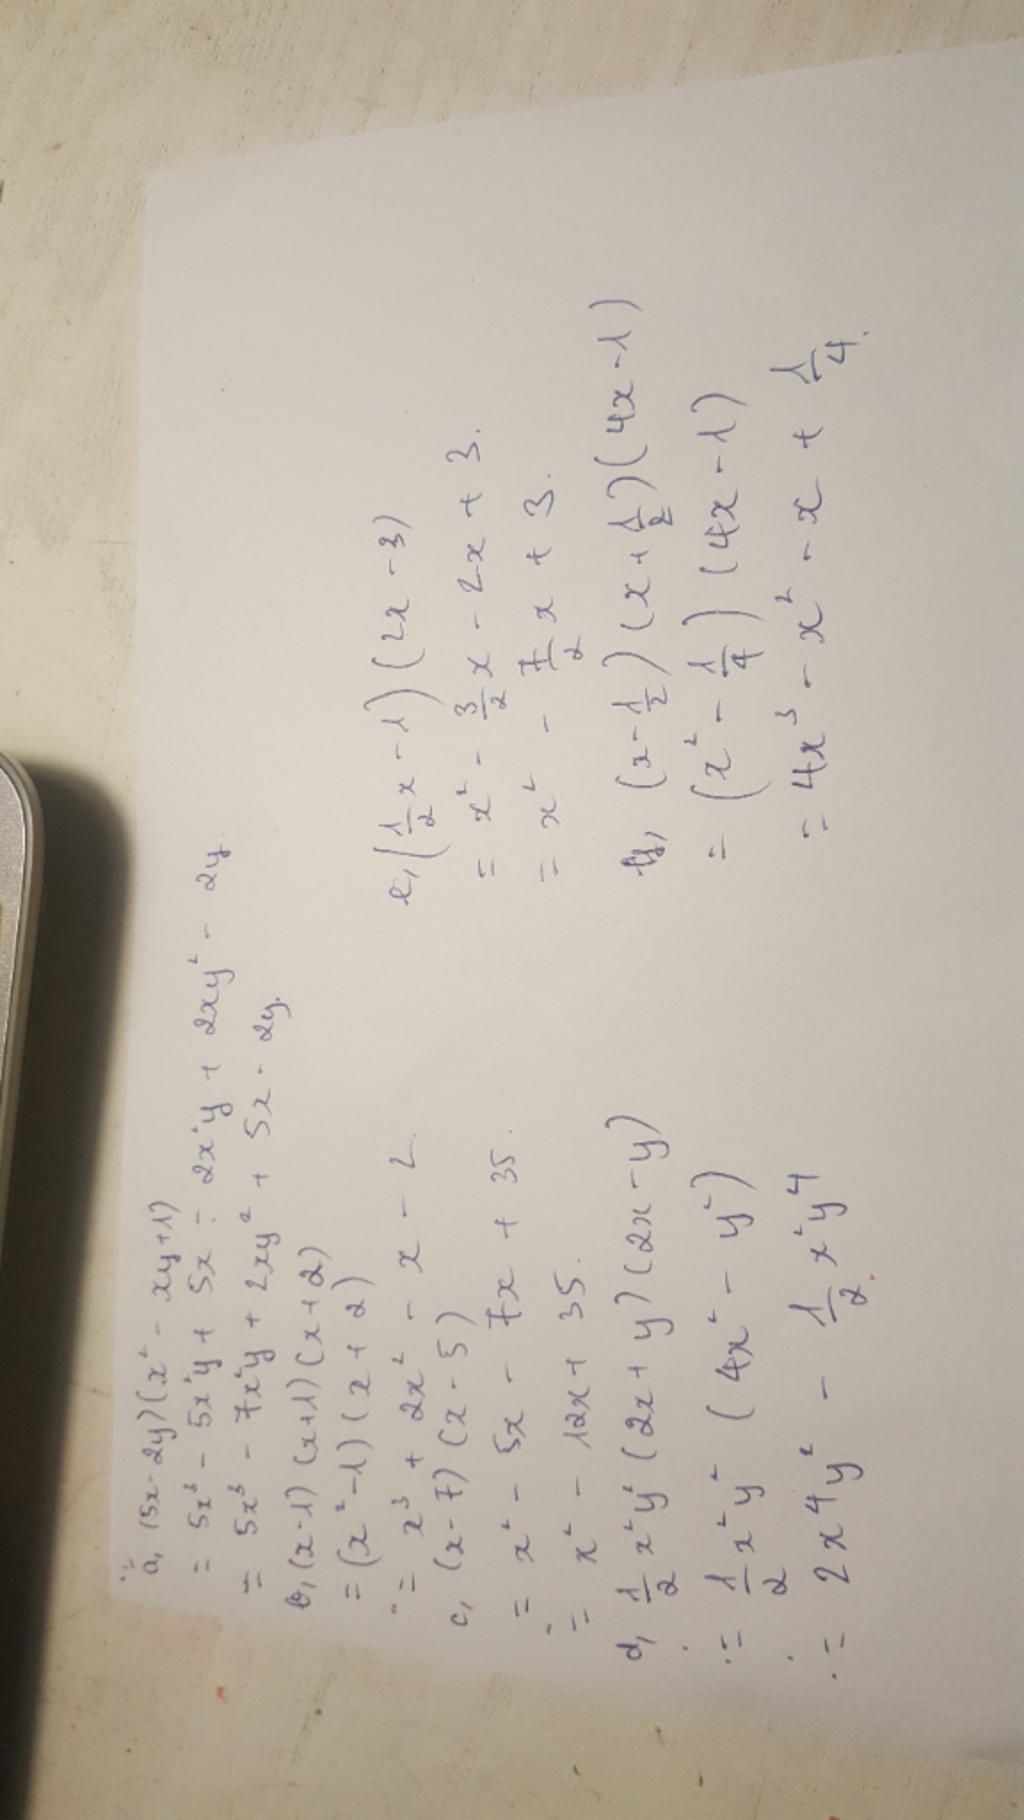 a, (5x - 2y)(x² - xy + 1)
= 5x³ - 5x²y + 5x - 2x²y + 2xy² - 2y.
= 5x³ - 7x²y + 2xy² + 5x - 2y.
b, (x-1)(x+1)(x+2)
= (x²-1)(x+2)
= x³ + 2x² - x - 2.
c, (x-7)(x-5)
= x² - 5x - 7x + 35.
= x² - 12x + 35.
d, 1/2 x²y²(2x+y)(2x-y)
= 1/2 x²y² (4x² - y²)
= 2x⁴y² - 1/2 x²y⁴
e, (1/2 x - 1)(2x - 3)
= x² - 3/2 x - 2x + 3.
= x² - 7/2 x + 3.
(x - 1/2)(x + 1/2)(4x - 1)
= (x² - 1/4)(4x - 1)
= 4x³ - x² - x + 1/4.